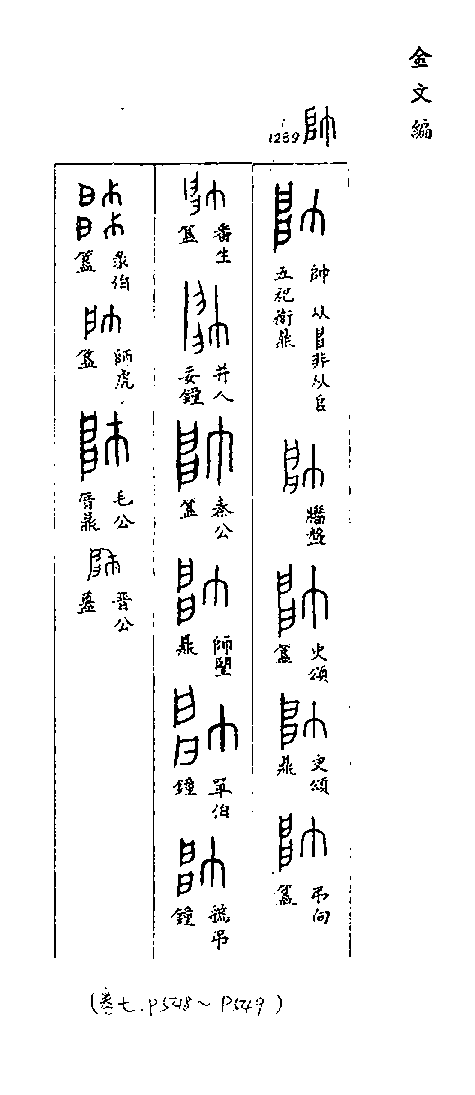 金文編
1259 帥
帥 从𠂤非从㠯
五祀衛鼎
牆盤
史頌簋
史頌鼎
弔向簋
番生簋
井人妄鐘
秦公簋
師朢鼎
單伯鐘
虢弔鐘
彔伯簋
師虎簋
毛公厝鼎
晉公𥂴
(卷七.P548~P549)